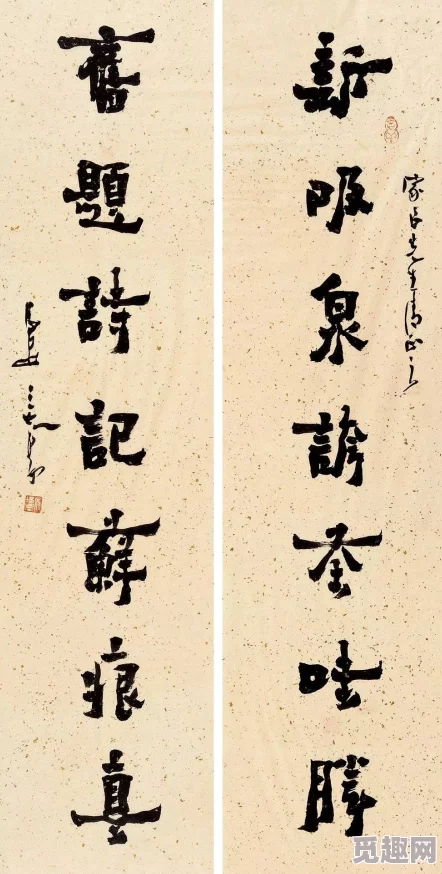 家長先生清正之
新汲泉誇茶味勝
舊題詩記蘚痕真
觅趣网